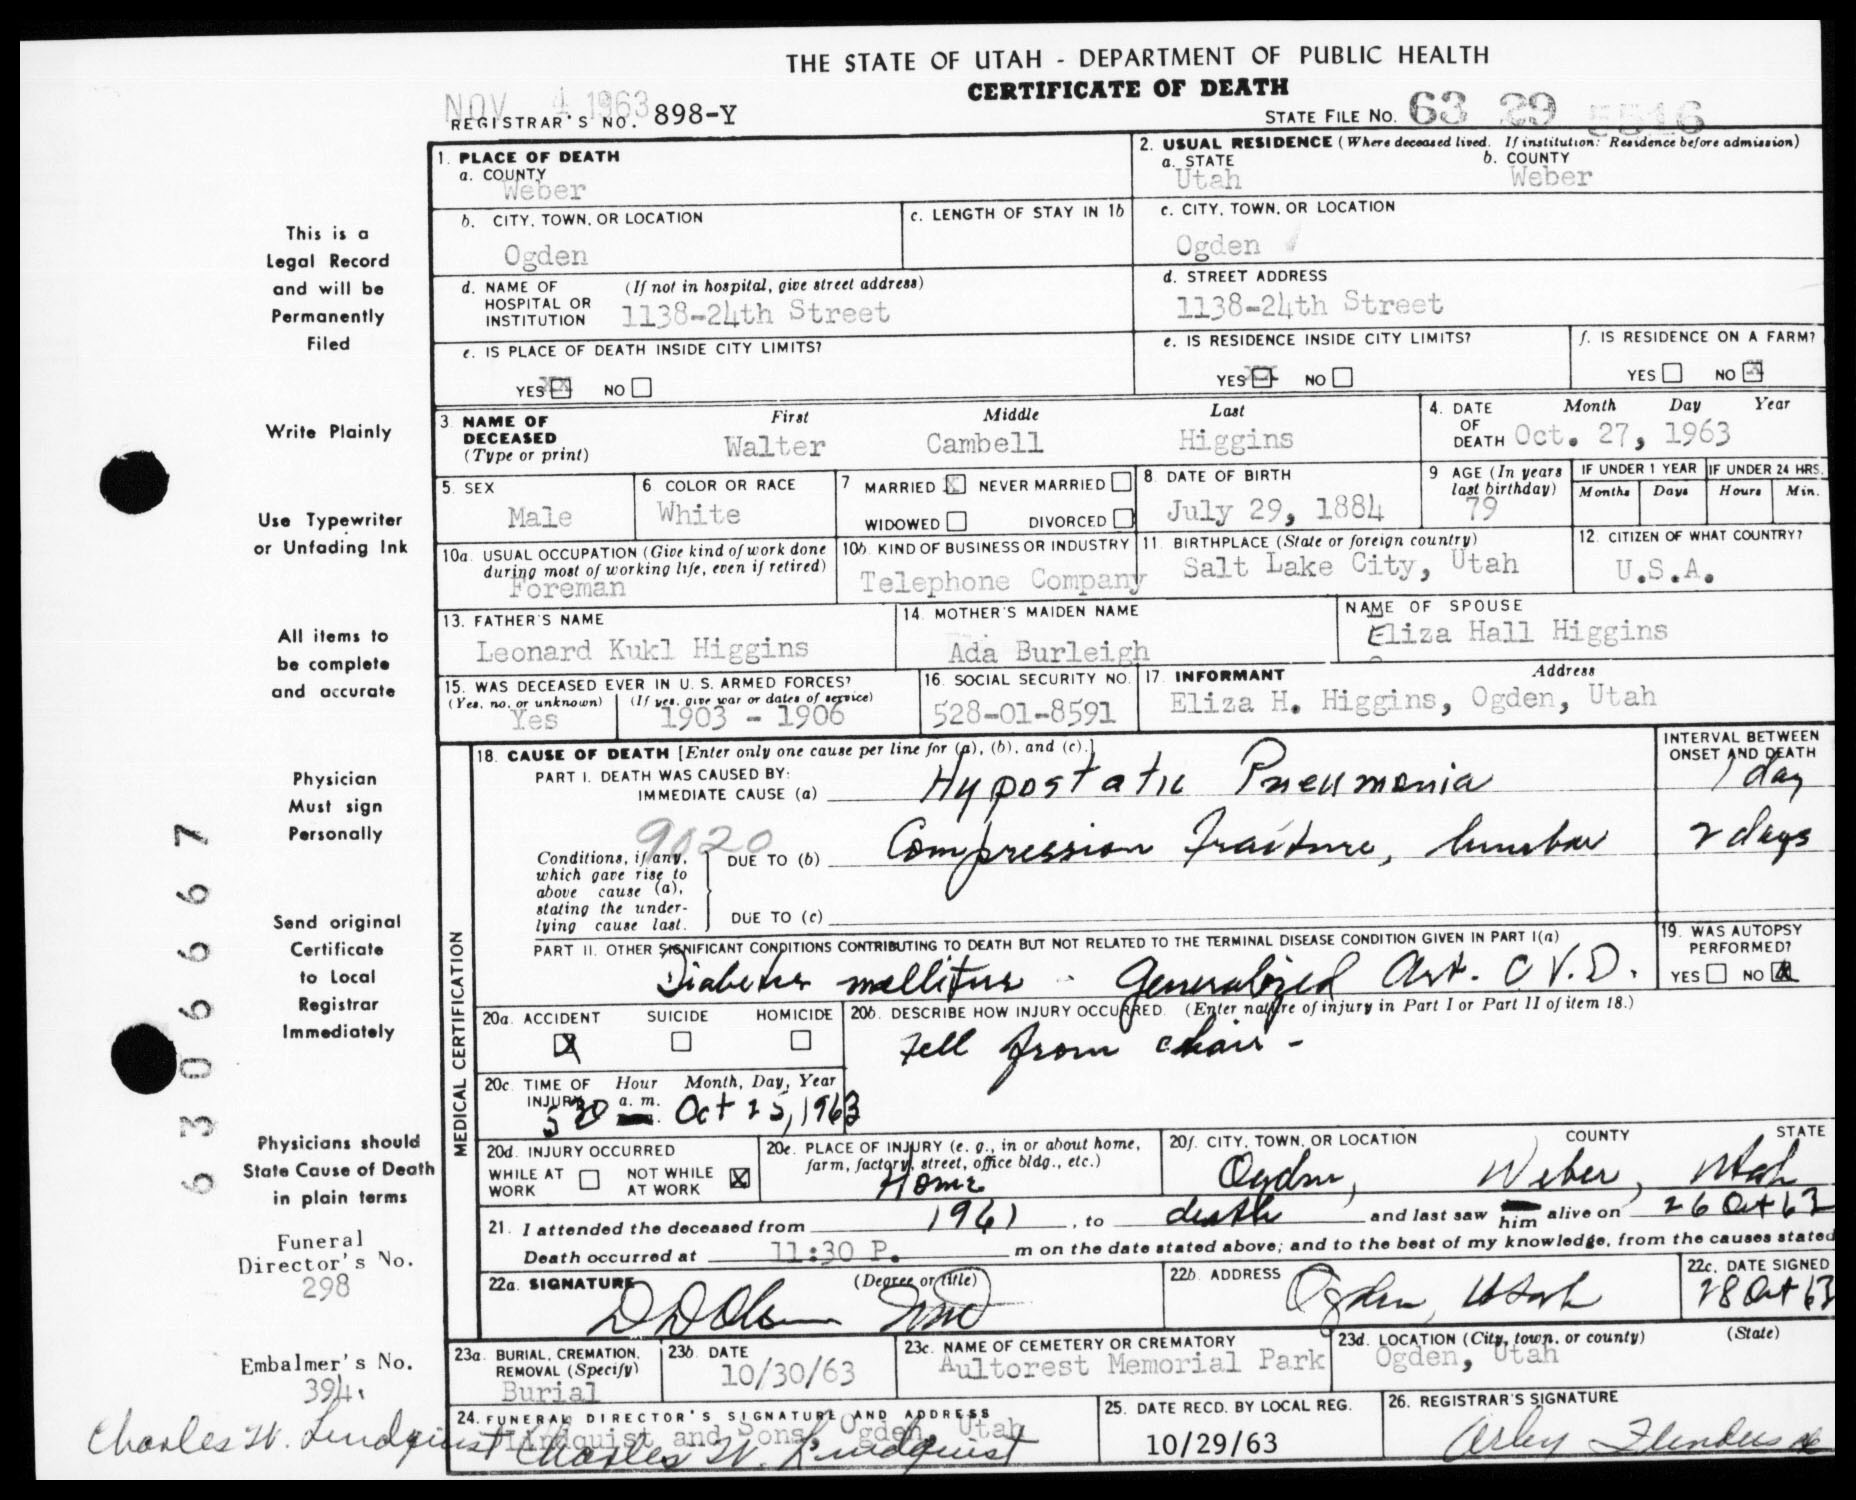 THE STATE OF UTAH - DEPARTMENT OF PUBLIC HEALTH
CERTIFICATE OF DEATH
NOV 4 1963
REGISTRAR'S NO. 898-Y
STATE FILE NO. 63 29 5516
1. PLACE OF DEATH
a. COUNTY
Weber
2. USUAL RESIDENCE (Where deceased lived. If institution: Residence before admission)
a. STATE b. COUNTY
Utah Weber
b. CITY, TOWN, OR LOCATION
Ogden
c. LENGTH OF STAY IN 1b
c. CITY, TOWN, OR LOCATION
Ogden
d. NAME OF HOSPITAL OR INSTITUTION (If not in hospital, give street address)
1138-24th Street
d. STREET ADDRESS
1138-24th Street
e. IS PLACE OF DEATH INSIDE CITY LIMITS?
YES XX NO
e. IS RESIDENCE INSIDE CITY LIMITS?
YES XX NO
f. IS RESIDENCE ON A FARM?
YES NO X
3. NAME OF DECEASED (Type or print)
First Middle Last
Walter Cambell Higgins
4. DATE OF DEATH Month Day Year
Oct. 27, 1963
5. SEX
Male
6 COLOR OR RACE
White
7 MARRIED X NEVER MARRIED
WIDOWED DIVORCED
8 DATE OF BIRTH
July 29, 1884
9 AGE (In years last birthday)
79
IF UNDER 1 YEAR IF UNDER 24 HRS.
Months Days Hours Min.
10a. USUAL OCCUPATION (Give kind of work done during most of working life, even if retired)
Foreman
10b. KIND OF BUSINESS OR INDUSTRY
Telephone Company
11. BIRTHPLACE (State or foreign country)
Salt Lake City, Utah
12. CITIZEN OF WHAT COUNTRY?
U.S.A.
13. FATHER'S NAME
Leonard Kukl Higgins
14. MOTHER'S MAIDEN NAME
Ada Burleigh
NAME OF SPOUSE
Eliza Hall Higgins
15. WAS DECEASED EVER IN U. S. ARMED FORCES?
(Yes, no, or unknown) (If yes, give war or dates of service)
Yes 1903 - 1906
16. SOCIAL SECURITY NO.
528-01-8591
17. INFORMANT Address
Eliza H. Higgins, Ogden, Utah
MEDICAL CERTIFICATION
18. CAUSE OF DEATH [Enter only one cause per line for (a), (b), and (c).]
INTERVAL BETWEEN ONSET AND DEATH
PART I. DEATH WAS CAUSED BY:
IMMEDIATE CAUSE (a) Hypostatic Pneumonia 1 day
9020
Conditions, if any, which gave rise to above cause (a), stating the underlying cause last.
DUE TO (b) Compression Fracture, lumbar 2 days
DUE TO (c)
PART II. OTHER SIGNIFICANT CONDITIONS CONTRIBUTING TO DEATH BUT NOT RELATED TO THE TERMINAL DISEASE CONDITION GIVEN IN PART I(a)
Diabetes mellitus - Generalized Art. C V. D.
19. WAS AUTOPSY PERFORMED?
YES NO X
20a. ACCIDENT SUICIDE HOMICIDE
X
20b. DESCRIBE HOW INJURY OCCURRED. (Enter nature of injury in Part I or Part II of item 18.)
Fell from chair -
20c. TIME OF INJURY Hour Month, Day, Year
5 30 a. m. Oct 25, 1963
20d. INJURY OCCURRED
WHILE AT WORK NOT WHILE AT WORK X
20e. PLACE OF INJURY (e. g., in or about home, farm, factory, street, office bldg., etc.)
Home
20f. CITY, TOWN, OR LOCATION COUNTY STATE
Ogden, Weber, Utah
21. I attended the deceased from 1961, to death and last saw him alive on 26 Oct 63
Death occurred at 11:30 P. m on the date stated above; and to the best of my knowledge, from the causes stated
22a. SIGNATURE (Degree or title)
D D Olson MD
22b. ADDRESS
Ogden, Utah
22c. DATE SIGNED
28 Oct 63
23a. BURIAL, CREMATION, REMOVAL (Specify)
Burial
23b. DATE
10/30/63
23c. NAME OF CEMETERY OR CREMATORY
Aultorest Memorial Park
23d. LOCATION (City, town, or county) (State)
Ogden, Utah
24. FUNERAL DIRECTOR'S SIGNATURE AND ADDRESS
Lindquist and Sons Ogden, Utah
Charles W. Lindquist
25. DATE RECD. BY LOCAL REG.
10/29/63
26. REGISTRAR'S SIGNATURE
This is a
Legal Record
and will be
Permanently
Filed
Write Plainly
Use Typewriter
or Unfading Ink
All items to
be complete
and accurate
Physician
Must sign
Personally
Send original
Certificate
to Local
Registrar
Immediately
Physicians should
State Cause of Death
in plain terms
Funeral
Director's No.
298
Embalmer's No.
394
Charles W. Lindquist
6306667